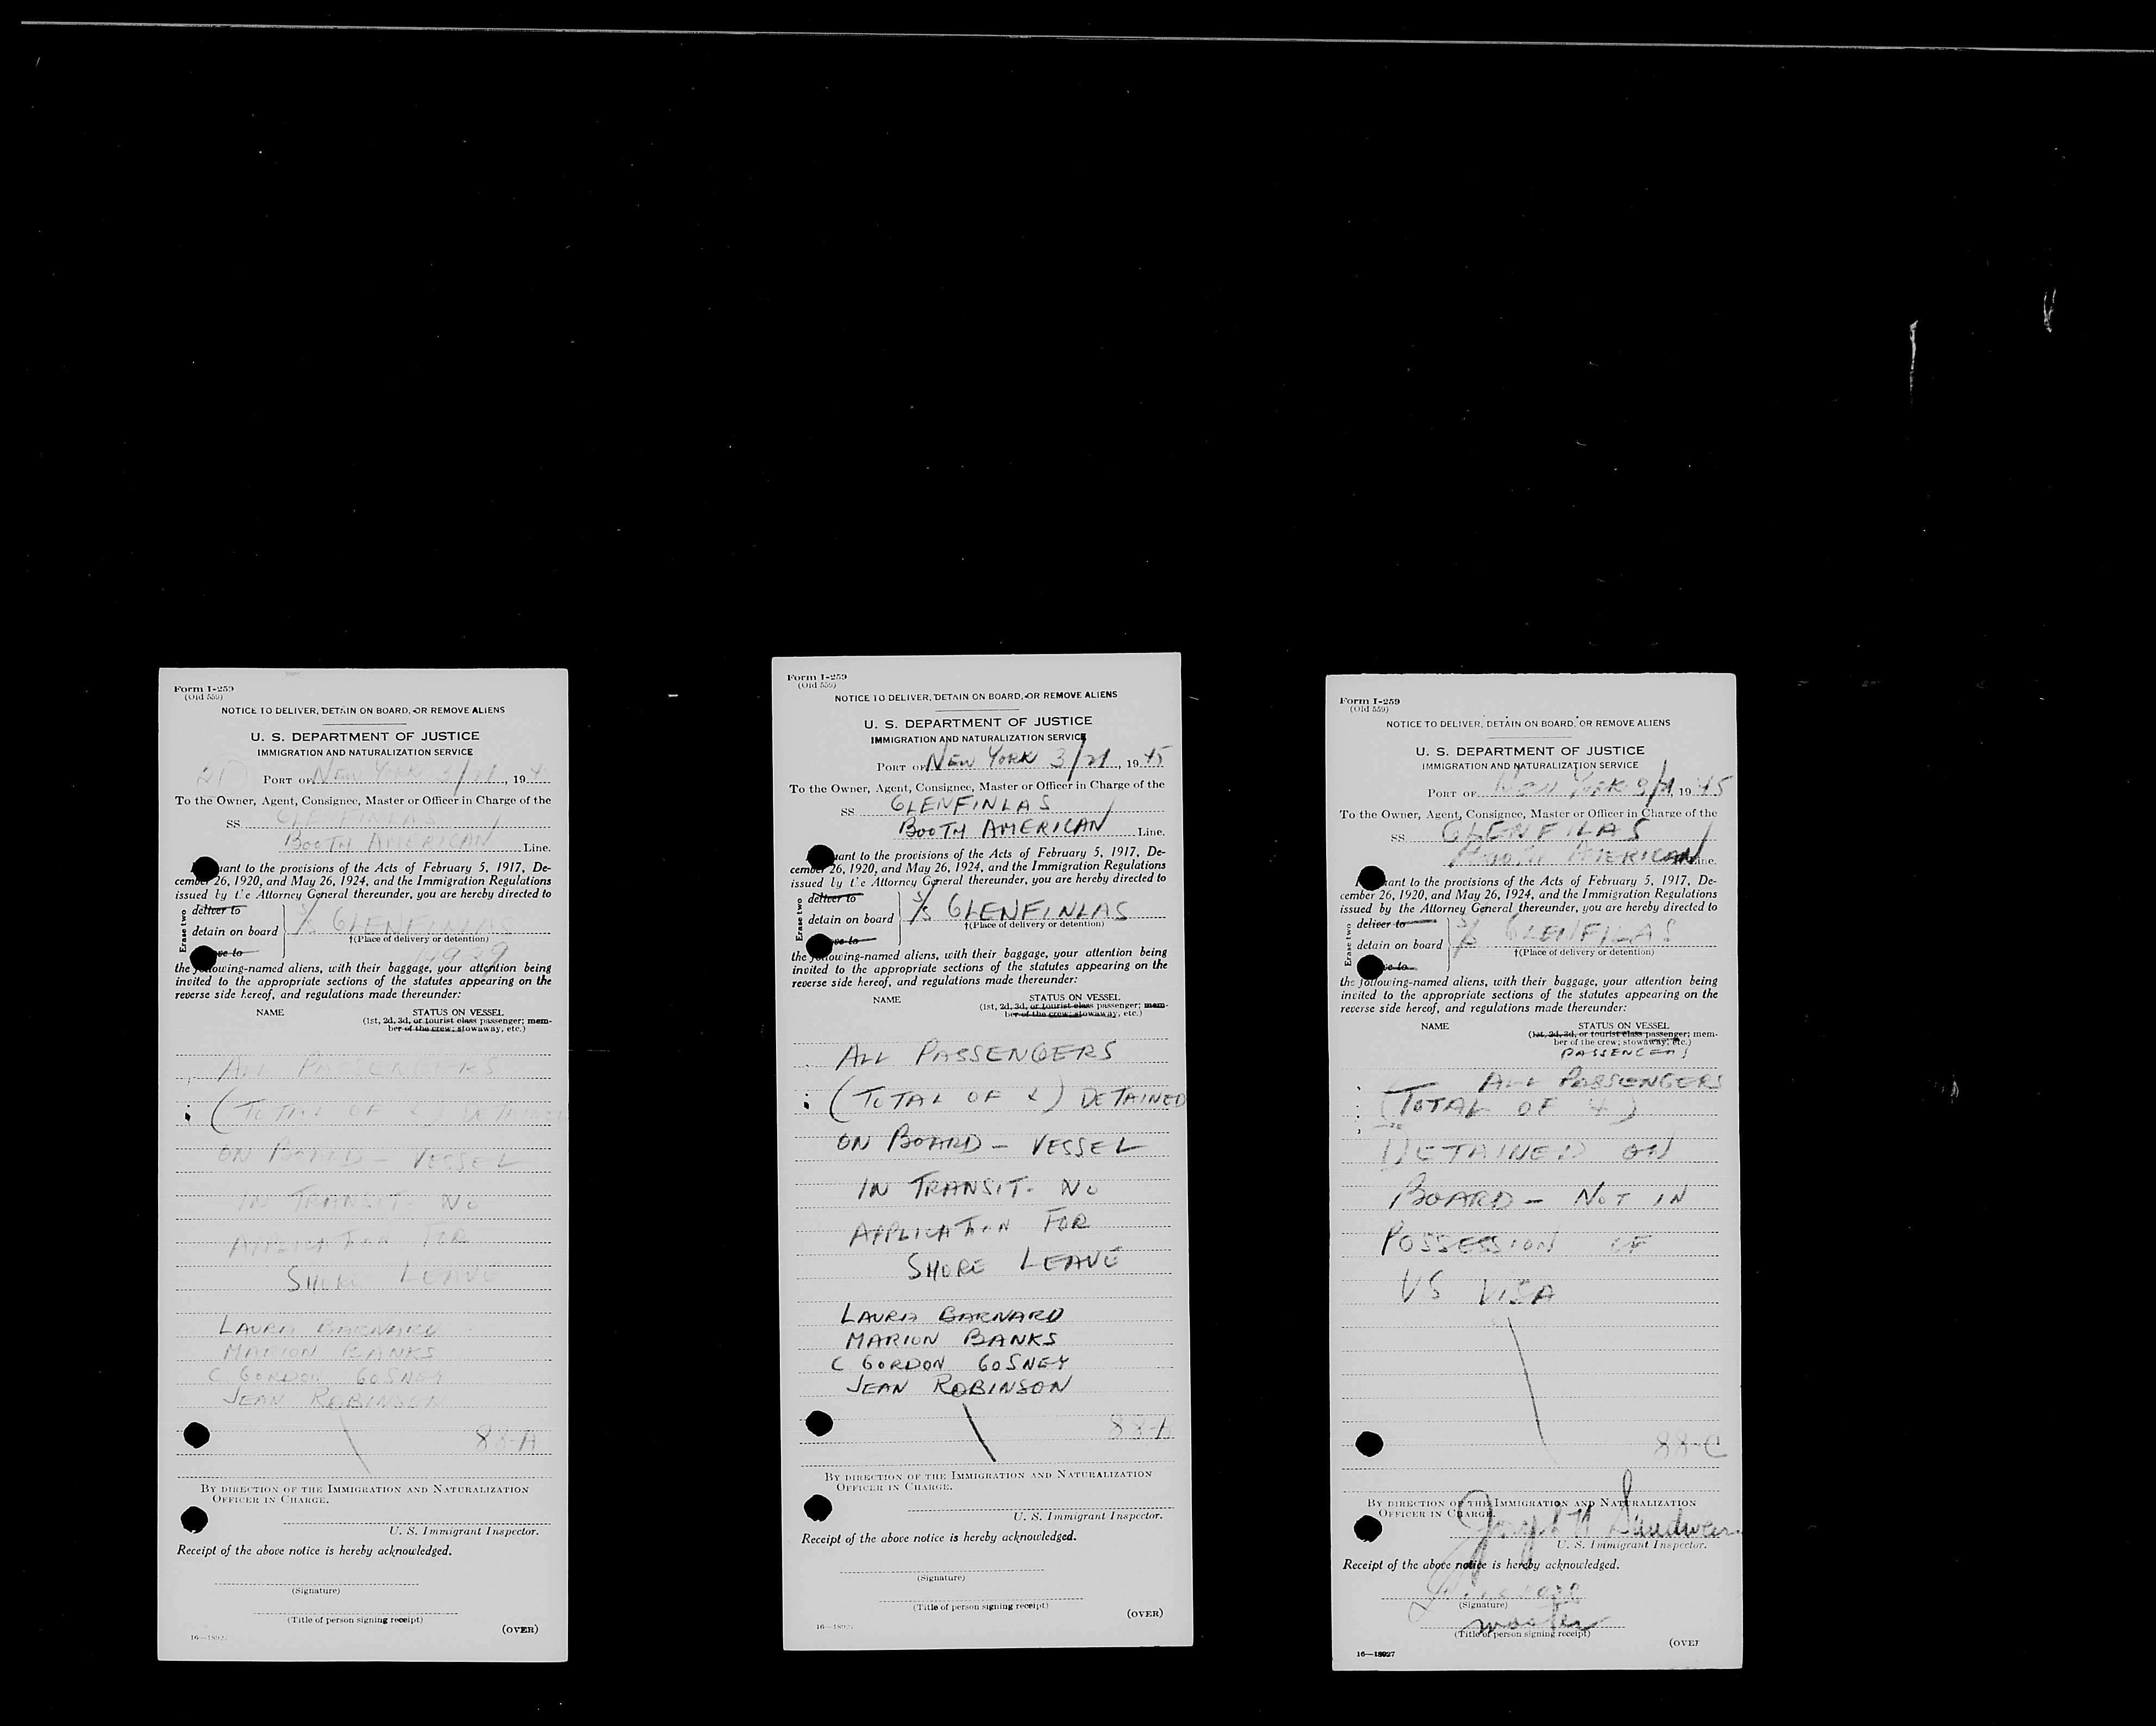 Form I-259
(Old 559)
NOTICE TO DELIVER, DETAIN ON BOARD, OR REMOVE ALIENS
U. S. DEPARTMENT OF JUSTICE
IMMIGRATION AND NATURALIZATION SERVICE
21
PORT OF NEW YORK 3/21, 1945
To the Owner, Agent, Consignee, Master or Officer in Charge of the
SS GLENFINLAS
BOOTH AMERICAN Line.
uant to the provisions of the Acts of February 5, 1917, De-
cember 26, 1920, and May 26, 1924, and the Immigration Regulations
issued by the Attorney General thereunder, you are hereby directed to
Erase two
deliver to
detain on board S/S GLENFINLAS
†(Place of delivery or detention)
ve to 14929
the following-named aliens, with their baggage, your attention being
invited to the appropriate sections of the statutes appearing on the
reverse side hereof, and regulations made thereunder:
NAME STATUS ON VESSEL
(1st, 2d, 3d, or tourist class passenger; mem-
ber of the crew; stowaway, etc.)
ALL PASSENGERS
(TOTAL OF 4) DETAINED
ON BOARD - VESSEL
IN TRANSIT - NO
APPLICATION FOR
SHORE LEAVE
LAURA BARNARD
MARION BANKS
C. GORDON GOSNEY
JEAN ROBINSON
88-A
BY DIRECTION OF THE IMMIGRATION AND NATURALIZATION
OFFICER IN CHARGE.
U. S. Immigrant Inspector.
Receipt of the above notice is hereby acknowledged.
(Signature)
(Title of person signing receipt)
16—18927 (OVER)
Form I-259
(Old 559)
NOTICE TO DELIVER, DETAIN ON BOARD, OR REMOVE ALIENS
U. S. DEPARTMENT OF JUSTICE
IMMIGRATION AND NATURALIZATION SERVICE
PORT OF NEW YORK 3/21, 1945
To the Owner, Agent, Consignee, Master or Officer in Charge of the
SS GLENFINLAS
BOOTH AMERICAN Line.
uant to the provisions of the Acts of February 5, 1917, De-
cember 26, 1920, and May 26, 1924, and the Immigration Regulations
issued by the Attorney General thereunder, you are hereby directed to
Erase two
deliver to
detain on board S/S GLENFINLAS
†(Place of delivery or detention)
ve to
the following-named aliens, with their baggage, your attention being
invited to the appropriate sections of the statutes appearing on the
reverse side hereof, and regulations made thereunder:
NAME STATUS ON VESSEL
(1st, 2d, 3d, or tourist class passenger; mem-
ber of the crew; stowaway, etc.)
ALL PASSENGERS
(TOTAL OF 4) DETAINED
ON BOARD - VESSEL
IN TRANSIT - NO
APPLICATION FOR
SHORE LEAVE
LAURA BARNARD
MARION BANKS
C GORDON GOSNEY
JEAN ROBINSON
88-A
BY DIRECTION OF THE IMMIGRATION AND NATURALIZATION
OFFICER IN CHARGE.
U. S. Immigrant Inspector.
Receipt of the above notice is hereby acknowledged.
(Signature)
(Title of person signing receipt)
16—18927 (OVER)
Form I-259
(Old 559)
NOTICE TO DELIVER, DETAIN ON BOARD, OR REMOVE ALIENS
U. S. DEPARTMENT OF JUSTICE
IMMIGRATION AND NATURALIZATION SERVICE
PORT OF NEW YORK 3/21, 1945
To the Owner, Agent, Consignee, Master or Officer in Charge of the
SS GLENFILAS
BOOTH AMERICAN Line.
uant to the provisions of the Acts of February 5, 1917, De-
cember 26, 1920, and May 26, 1924, and the Immigration Regulations
issued by the Attorney General thereunder, you are hereby directed to
Erase two
deliver to
detain on board S/S GLENFILAS
†(Place of delivery or detention)
ve to
the following-named aliens, with their baggage, your attention being
invited to the appropriate sections of the statutes appearing on the
reverse side hereof, and regulations made thereunder:
NAME STATUS ON VESSEL
(1st, 2d, 3d, or tourist class passenger; mem-
ber of the crew; stowaway, etc.)
PASSENGERS
ALL PASSENGERS
(TOTAL OF 4)
DETAINED ON
BOARD - NOT IN
POSSESSION OF
US VISA
88-C
BY DIRECTION OF THE IMMIGRATION AND NATURALIZATION
OFFICER IN CHARGE.
U. S. Immigrant Inspector.
Receipt of the above notice is hereby acknowledged.
(Signature)
master
(Title of person signing receipt)
16—18927 (OVER